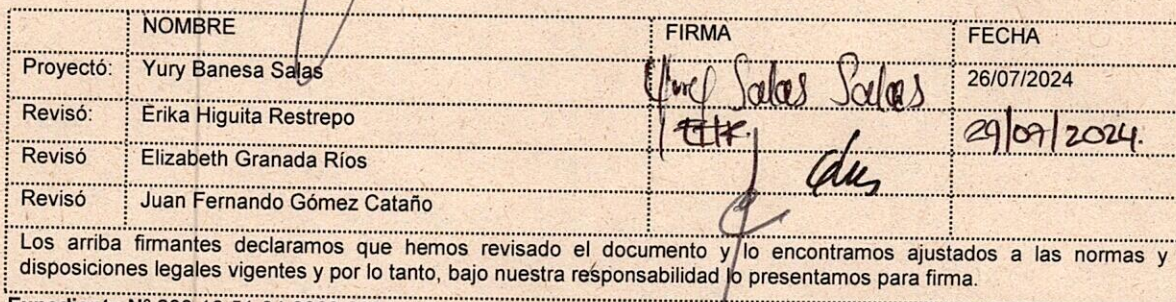 NOMBRE FIRMA FECHA
Proyectó: Yury Banesa Salas Yury Salas Salas 26/07/2024
Revisó: Erika Higuita Restrepo EHR 29/07/2024.
Revisó Elizabeth Granada Ríos
Revisó Juan Fernando Gómez Cataño
Los arriba firmantes declaramos que hemos revisado el documento y lo encontramos ajustados a las normas y
disposiciones legales vigentes y por lo tanto, bajo nuestra responsabilidad lo presentamos para firma.